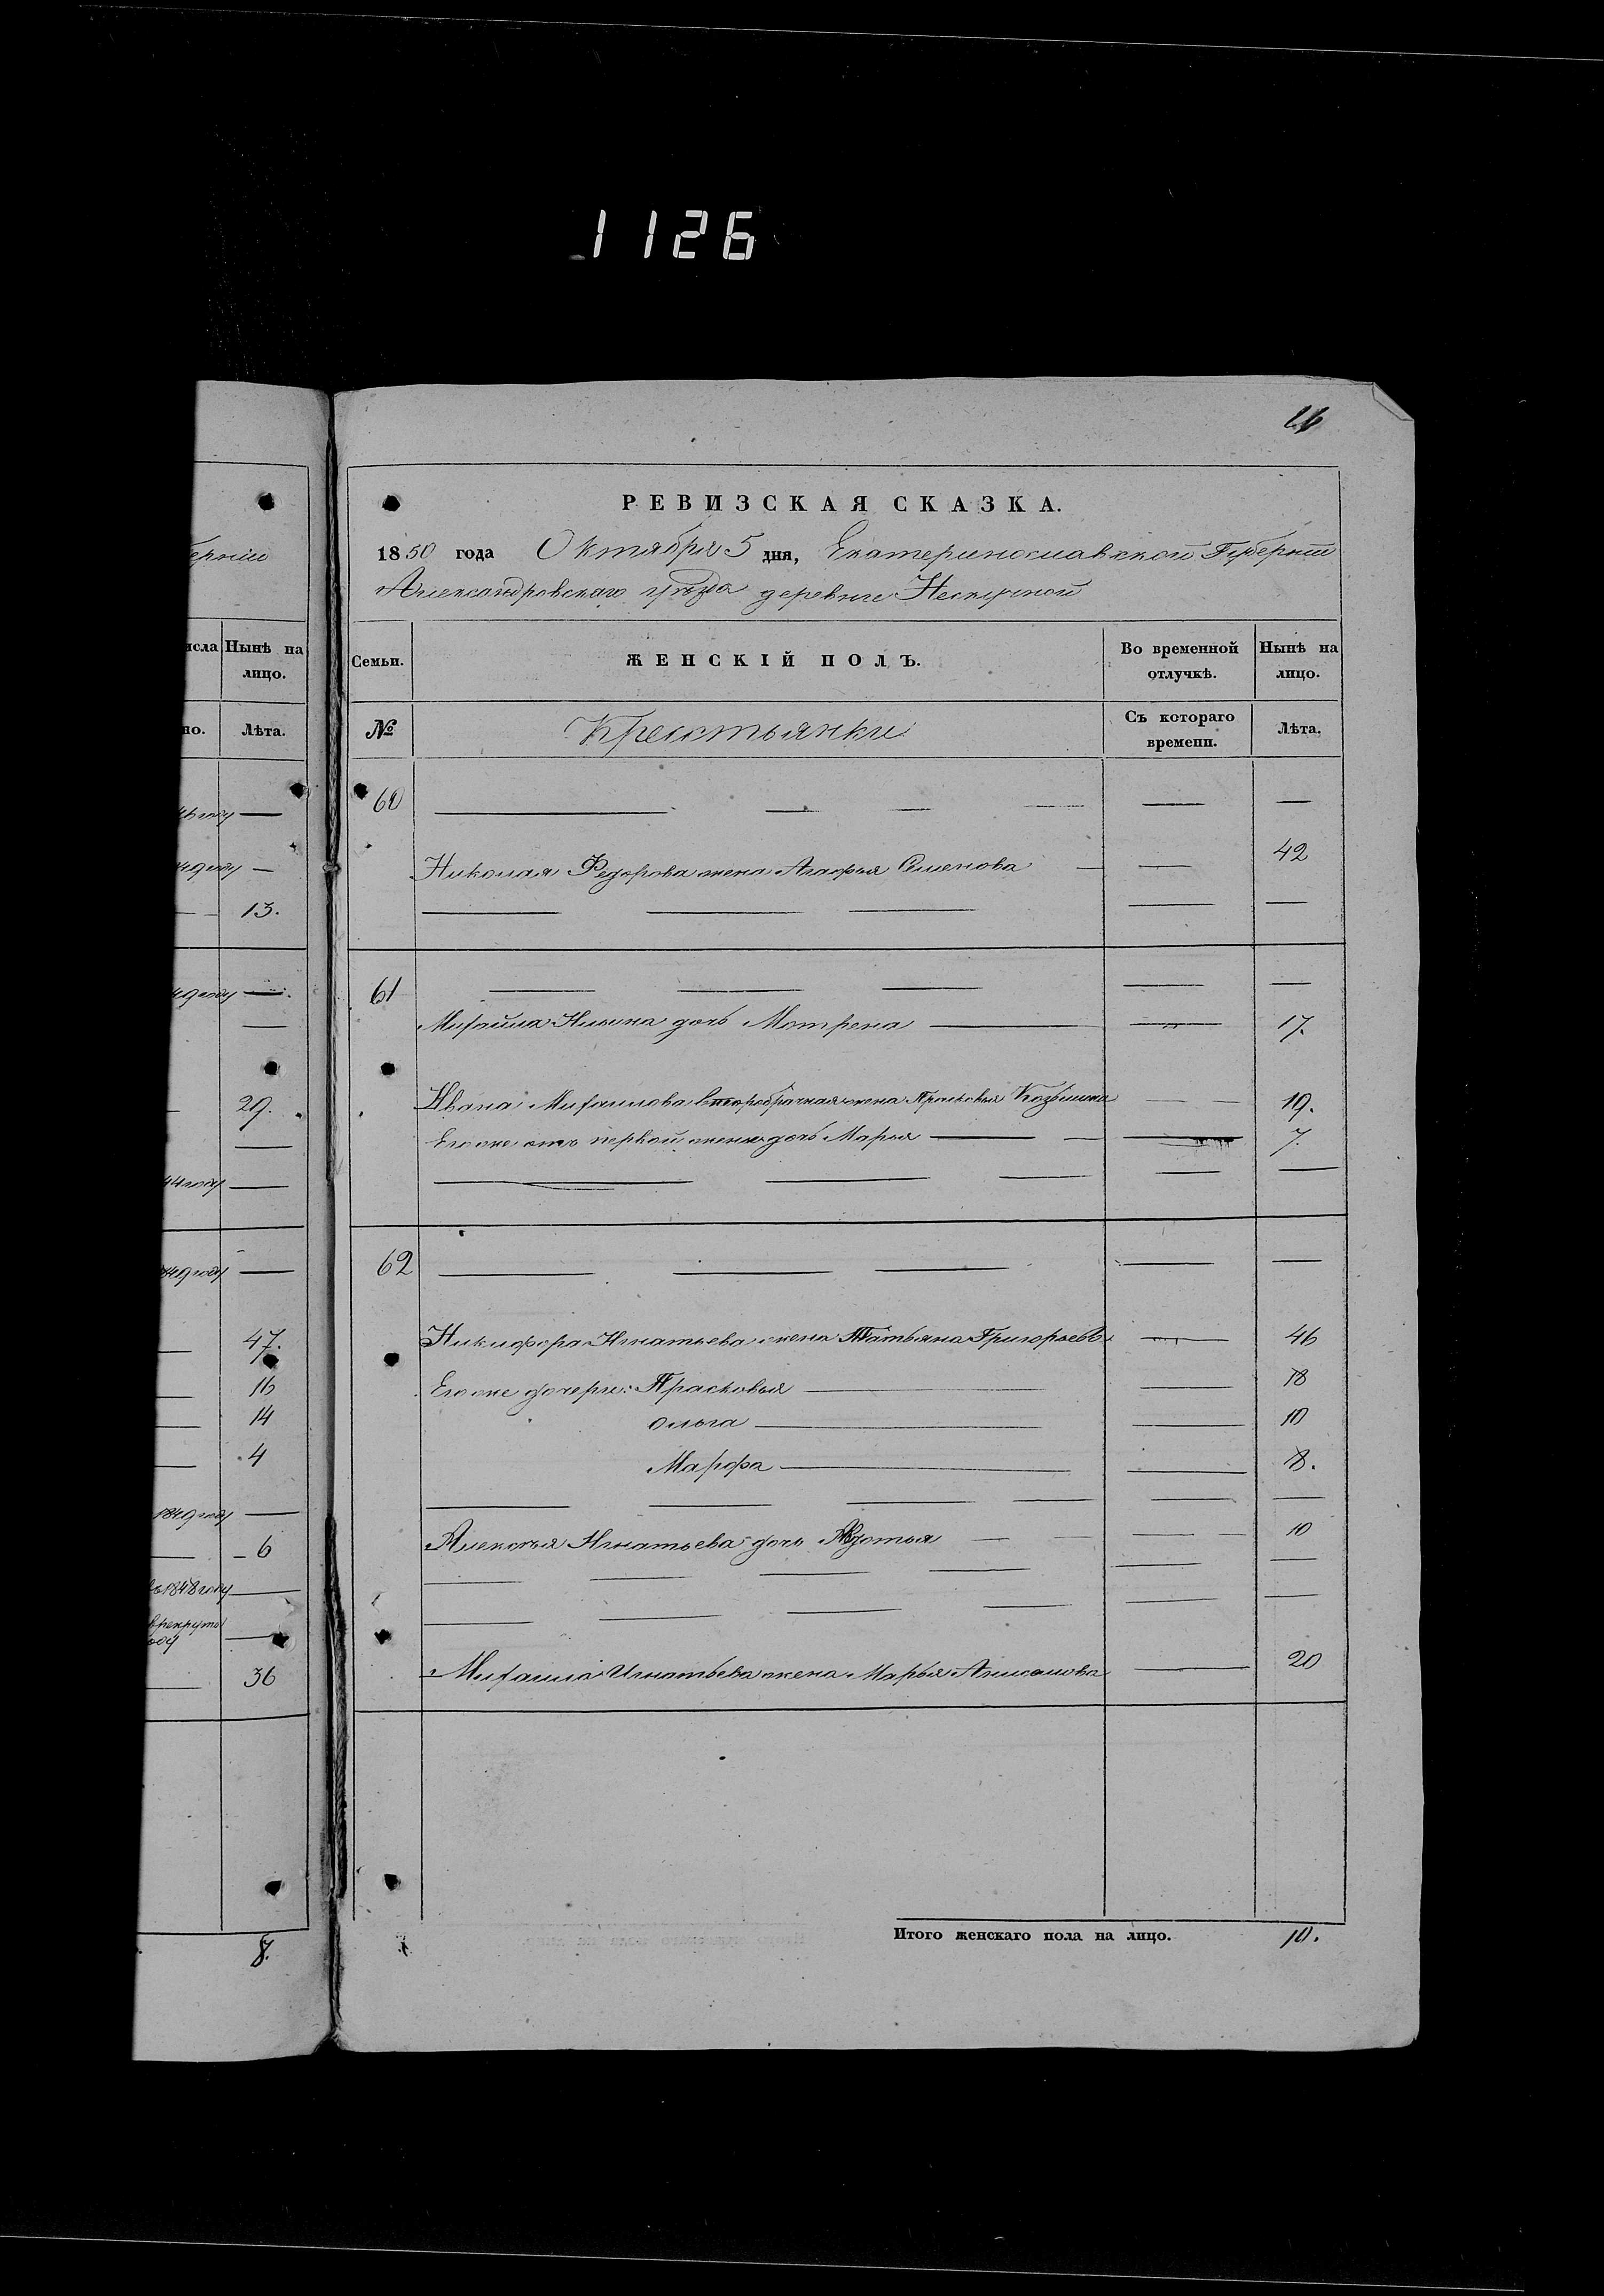 1126
26
РЕВИЗСКАЯ СКАЗКА.
1850 года Октября 5 дня, Екатеринославской Губерніи
Александровскаго уѣзда деревни Нескучной
Семьи.
ЖЕНСКІЙ ПОЛЪ.
Во временной отлучкѣ.
Нынѣ на лицо.
№
Крестьянки
Съ котораго времени.
Лѣта.
60
Николая Федорова жена Агафья Семенова — — 42
61
Михайла Ильина дочь Мотрена — — 17.
Ивана Михайлова второбрачная жена Прасковья Козьмина — — 19.
Его же отъ первой жены дочь Марья — — 7.
62
Никифора Игнатьева жена Татьяна Григорьева — 46
Его же дочери: Прасковья — — 18
Ольга — — 10
Марфа — — 8.
Алексѣя Игнатьева дочь Авдотья — — 10
Михаила Игнатьева жена Марья — 20
Итого женскаго пола на лицо. 10.
ерніи
исла
Нынѣ на
лицо.
но.
Лѣта.
13.
29.
44 году
47.
16
14
4
1849 году
6
въ 1848 году
в рекруты
оду
36
8.